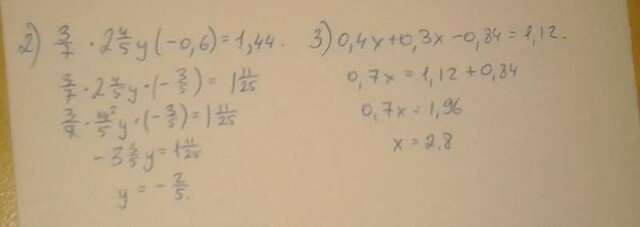 2) 3/7 · 2 4/5 y (-0,6) = 1,44.
3/7 · 2 4/5 y · (-3/5) = 1 11/25
3/7 · 14²/5 y · (-3/5) = 1 11/25
-3 3/5 y = 1 11/25
y = -2/5.
3) 0,4x+0,3x-0,84=1,12.
0,7x = 1,12+0,84
0,7x = 1,96
x = 2.8